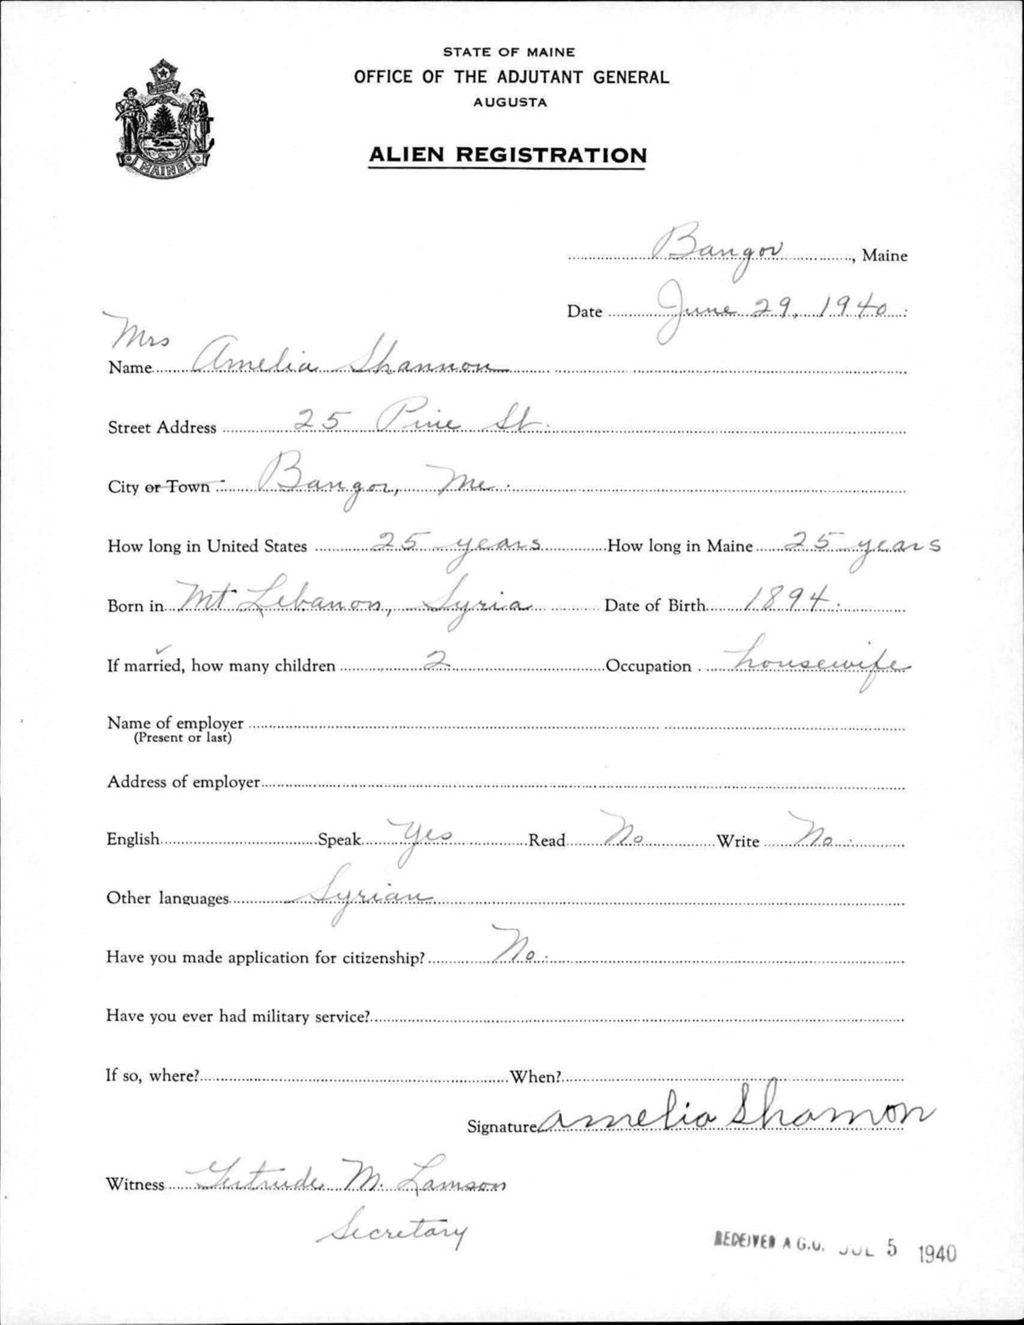 STATE OF MAINE
OFFICE OF THE ADJUTANT GENERAL
AUGUSTA
ALIEN REGISTRATION
MAINE
Bangor, Maine
Date June 29, 1940.
Mrs
Name Amelia Shannon
Street Address 25 Pine St.
City or Town - Bangor, Me.
How long in United States 25 years How long in Maine 25 years
Born in Mt Lebanon, Syria Date of Birth 1894.
If married, how many children 2 Occupation housewife
Name of employer
(Present or last)
Address of employer
English Speak Yes Read No Write No.
Other languages Syrian
Have you made application for citizenship? No.
Have you ever had military service?
If so, where? When?
Signature Amelia Shannon
Witness Gertrude M. Lamson
Secretary
RECEIVED A.G.O. JUL 5 1940